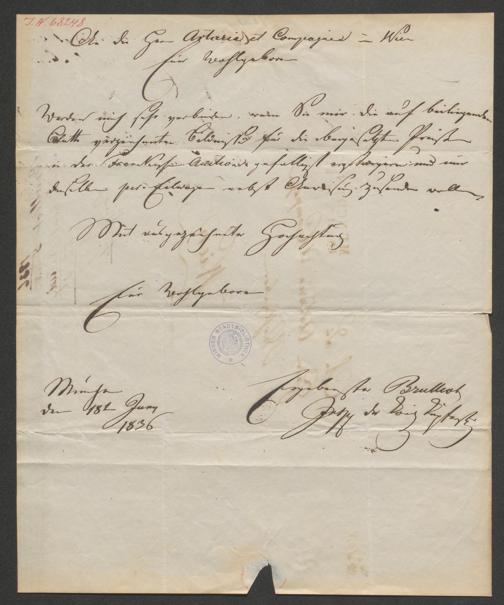 I.N. 68248
An die Herrn Artaria et Compagnie in Wien
Euer Wohlgeboren
Werden mich sehr verbinden, wenn Sie mir die auf beiliegendem
Blatt verzeichneten Bildnisse für die beigesetzten Preise
in der Auction gefälligst und mir
dieselben per Eilwagen nebst zusenden wollen
Mit ausgezeichneter Hochachtung
Euer Wohlgeboren
München
den 18t Juny
1836
Ergebenster Brulliot
der König